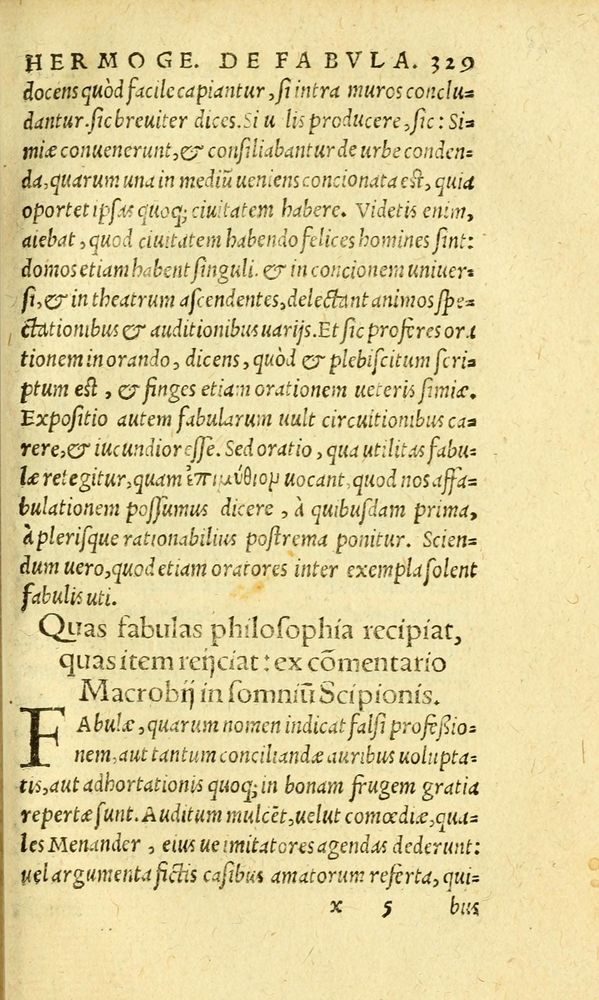 HERMOGE. DE FABVLA. 329
docens quòd facile capiantur, si intra muros conclu=
dantur. sic breuiter dices. Si u lis producere, sic: Si=
miæ conuenerunt, & consiliabantur de urbe conden=
da, quarum una in mediũ ueniens concionata est, quia
oportet ipsas quoq; ciuitatem habere. Videtis enim,
aiebat, quod ciuitatem habendo felices homines sint:
domos etiam habent singuli. & in concionem uniuer=
si, & in theatrum ascendentes, delectant animos spe=
ctationibus & auditionibus uarijs. Et sic proferes ora
tionem in orando, dicens, quòd & plebiscitum scri=
ptum est, & finges etiam orationem ueteris simiæ.
Expositio autem fabularum uult circuitionibus ca=
rere, & iucundior esse. Sed oratio, qua utilitas fabu=
læ retegitur, quam ἐπιμύθιον uocant, quod nos affa=
bulationem possumus dicere, à quibusdam prima,
à plerisque rationabilius postrema ponitur. Scien=
dum uero, quod etiam oratores inter exempla solent
fabulis uti.
Quas fabulas philosophia recipiat,
quas item reijciat: ex cõmentario
Macrobij in somniũ Scipionis.
FAbulæ, quarum nomen indicat falsi professio=
nem, aut tantum conciliandæ auribus uolupta=
tis, aut adhortationis quoq; in bonam frugem gratia
repertæ sunt. Auditum mulcẽt, uelut comœdiæ, qua=
les Menander, eius ue imitatores agendas dederunt:
uel argumenta fictis casibus amatorum referta, qui=
x 5 bus